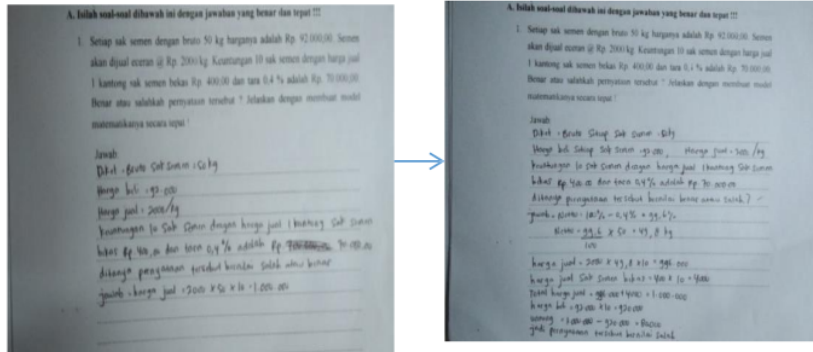 A. Isilah soal-soal dibawah ini dengan jawaban yang benar dan tepat !!!
1. Setiap sak semen dengan bruto 50 kg harganya adalah Rp. 92.000,00. Semen
akan dijual eceran @ Rp. 2000/kg. Keuntungan 10 sak semen dengan harga jual
1 kantong sak semen bekas Rp. 400,00 dan tara 0,4 % adalah Rp. 70.000,00.
Benar atau salahkah pernyataan tersebut ? Jelaskan dengan membuat model
matematikanya secara tepat !
Jawab:
Diket : Bruto Sak Semen : 50 kg
Harga beli : 92.000
Harga jual : 2000/kg
keuntungan 10 Sak Semen dengan harga jual 1 kantong Sak Semen
bekas Rp. 400,00 dan tara 0,4 % adalah Rp. 70.000,00
ditanya pernyataan tersebut bernilai Salah atau benar
jawab : harga jual = 2000 x 50 x 10 = 1.000.000
A. Isilah soal-soal dibawah ini dengan jawaban yang benar dan tepat !!!
1. Setiap sak semen dengan bruto 50 kg harganya adalah Rp. 92.000,00. Semen
akan dijual eceran @ Rp. 2000/kg. Keuntungan 10 sak semen dengan harga jual
1 kantong sak semen bekas Rp. 400,00 dan tara 0,4 % adalah Rp. 70.000,00.
Benar atau salahkah pernyataan tersebut ? Jelaskan dengan membuat model
matematikanya secara tepat !
Jawab:
Diket : Bruto Setiap Sak Semen : 50kg
Harga beli Setiap Sak Semen : 92.000, Harga jual : 2000/kg
keuntungan 10 Sak Semen dengan harga jual 1 kantong Sak Semen
bekas Rp. 400,00 dan tara 0,4% adalah Rp. 70.000,00
ditanya pernyataan tersebut bernilai benar atau Salah ?
jawab : Netto = 100% - 0,4% = 99,6%
Netto = 99,6 x 50 = 49,8 kg
100
harga jual = 2000 x 49,8 x 10 = 996.000
harga jual Sak Semen bekas = 400 x 10 = 4000
Total harga jual = 996.000 + 4000 = 1.000.000
harga beli = 92.000 x 10 = 920.000
untung = 1.000.000 - 920.000 = 80.000
jadi pernyataan tersebut bernilai Salah